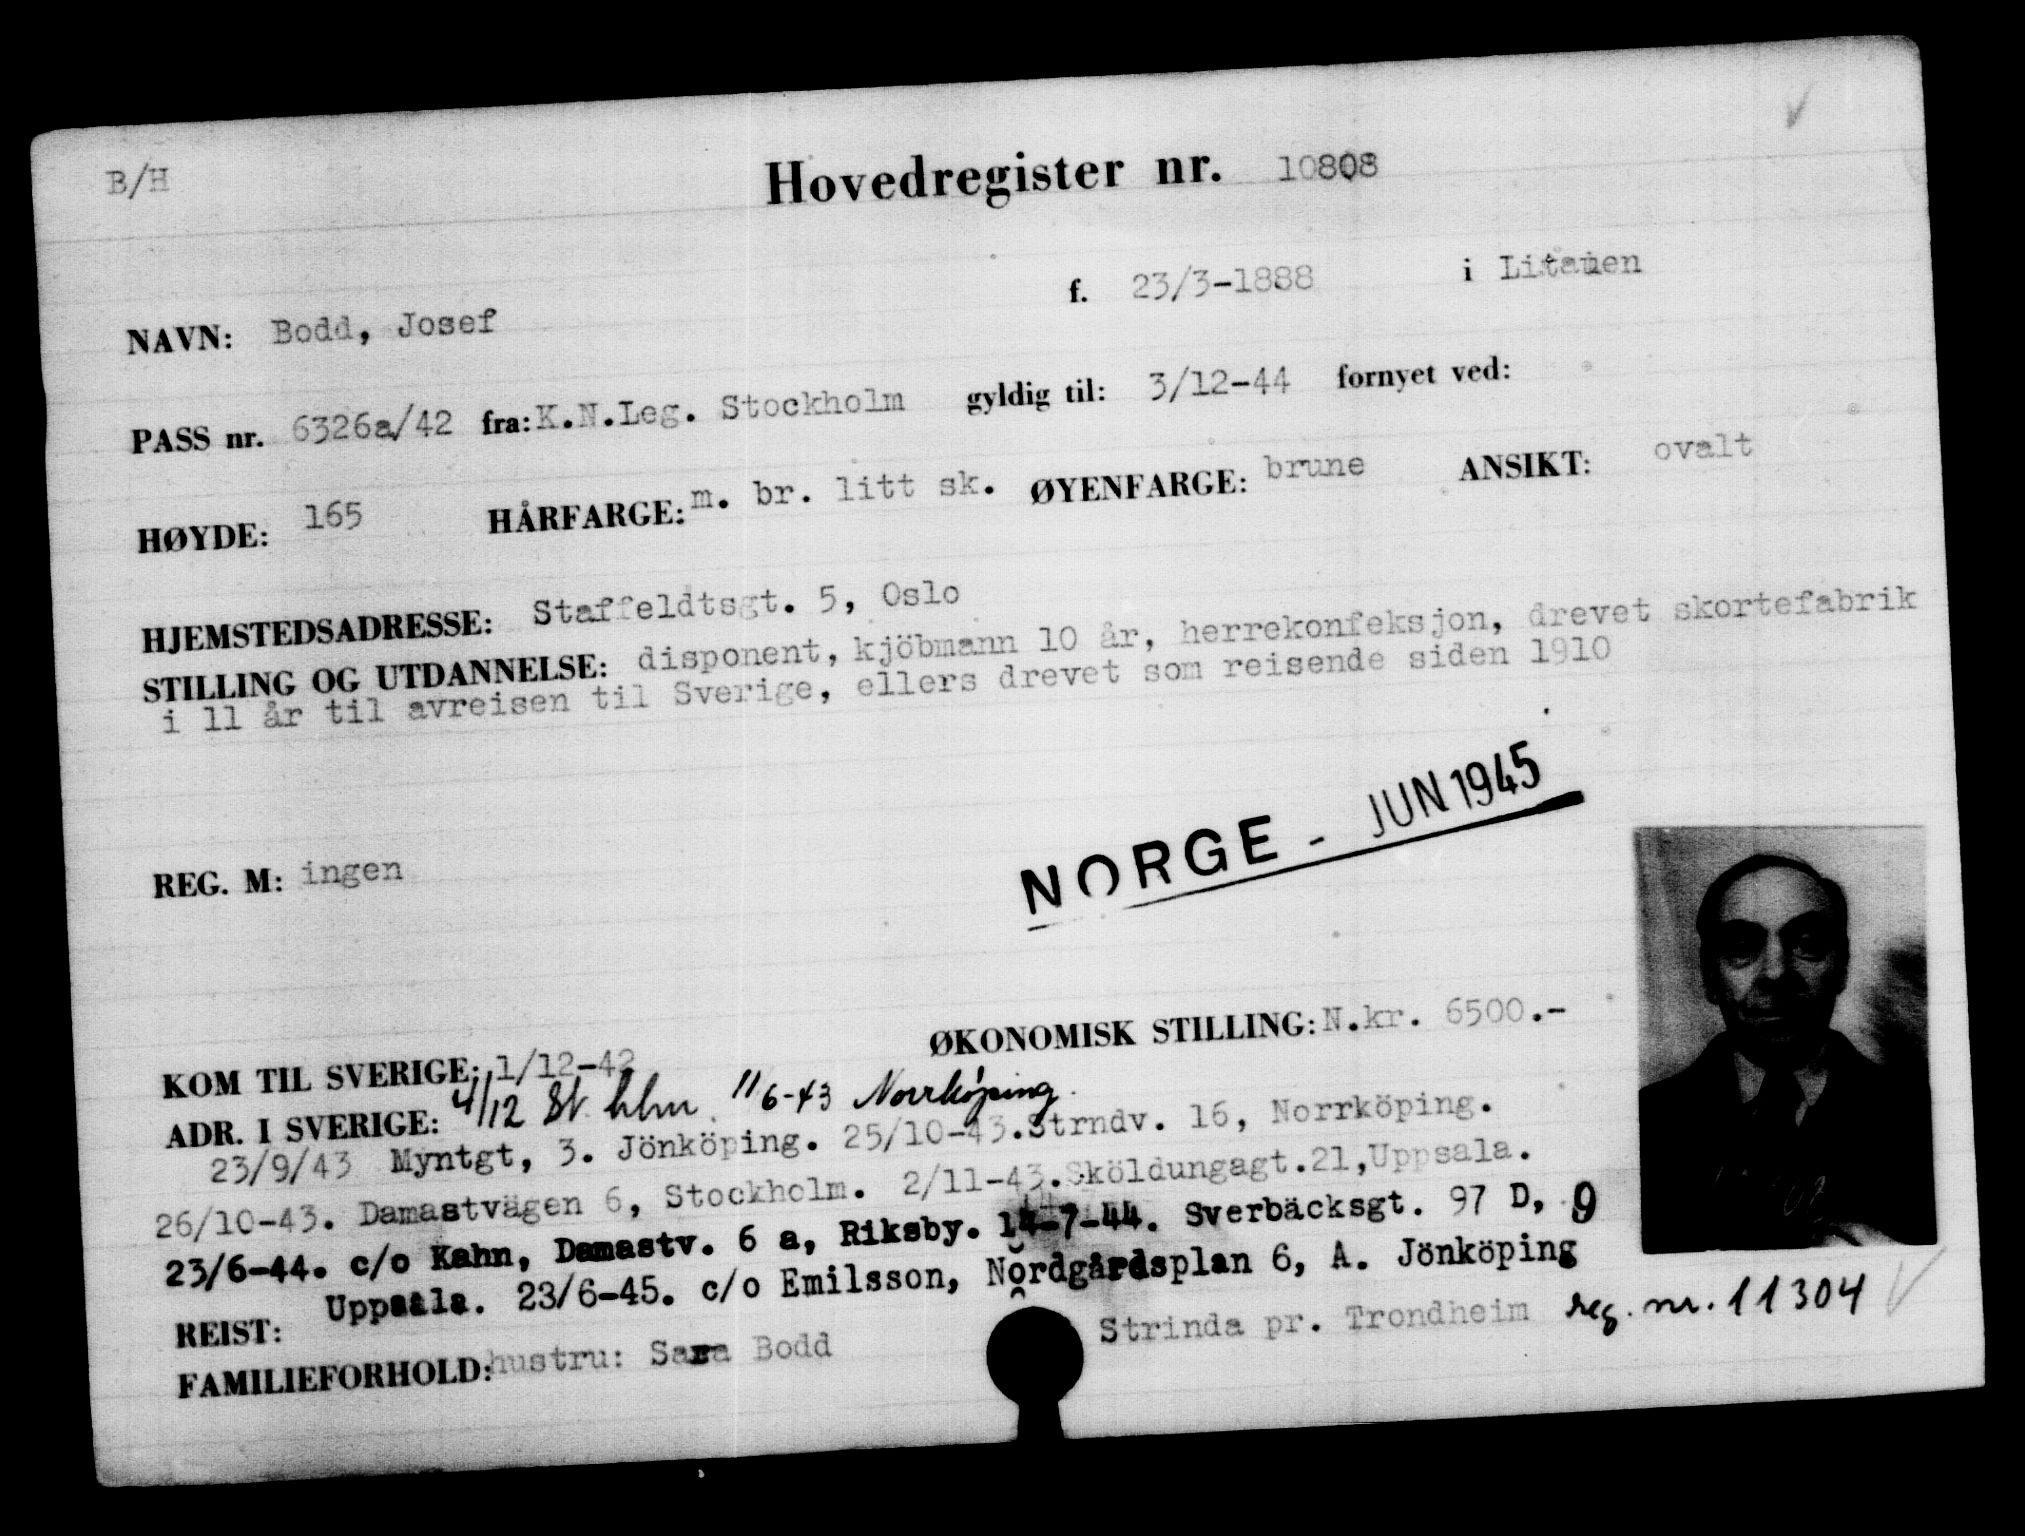 B/H Hovedregister nr. 10808
NAVN: Bodd, Josef f. 23/3-1888 i Litauen
PASS nr. 6326a/42 fra: K.N.Leg. Stockholm gyldig til: 3/12-44 fornyet ved:
HØYDE: 165 HÅRFARGE: m. br. litt sk. ØYENFARGE: brune ANSIKT: ovalt
HJEMSTEDSADRESSE: Staffeldtsgt. 5, Oslo
STILLING OG UTDANNELSE: disponent, kjöbmann 10 år, herrekonfeksjon, drevet skortefabrik
i 11 år til avreisen til Sverige, ellers drevet som reisende siden 1910
NORGE - JUN 1945
REG. M: ingen
KOM TIL SVERIGE: 1/12-42 ØKONOMISK STILLING: N.kr. 6500.-
ADR. I SVERIGE: 4/12 St hlm. 11/6-43 Norrköping.
23/9/43 Myntgt, 3. Jönköping. 25/10-43. Strndv. 16, Norrköping.
26/10-43. Damastvägen 6, Stockholm. 2/11-43. Sköldungagt. 21, Uppsala.
23/6-44. c/o Kahn, Damastv. 6 a, Riksby. 14-7-44. Sverbäcksgt. 97 D, 9
Uppsala. 23/6-45. c/o Emilsson, Nordgårdsplan 6, A. Jönköping
REIST: Strinda pr. Trondheim reg. nr. 11304
FAMILIEFORHOLD: hustru: Sara Bodd